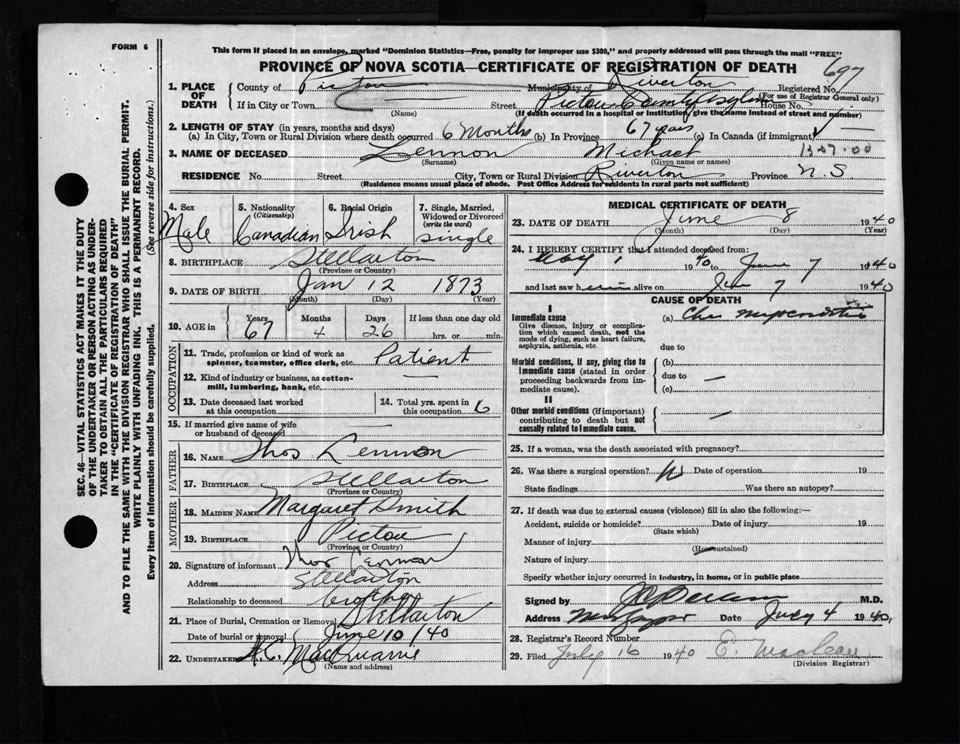 FORM 6
This form if placed in an envelope, marked "Dominion Statistics—Free, penalty for improper use $300," and properly addressed will pass through the mail "FREE"
PROVINCE OF NOVA SCOTIA—CERTIFICATE OF REGISTRATION OF DEATH
697
1. PLACE OF DEATH
County of Pictou Municipality of Riverton Registered No.
(For use of Registrar General only)
If in City or Town Street Pictou County Asylum House No.
(Name) (If death occurred in a hospital or institution, give the name instead of street and number)
2. LENGTH OF STAY (in years, months and days)
(a) In City, Town or Rural Division where death occurred 6 Months (b) In Province 67 years (c) In Canada (if immigrant)
3. NAME OF DECEASED Lennon Michael
(Surname) (Given name or names)
RESIDENCE No. Street City, Town or Rural Division Riverton Province N.S
(Residence means usual place of abode. Post Office Address for residents in rural parts not sufficient)
4. Sex Male
5. Nationality (Citizenship) Canadian
6. Racial Origin Irish
7. Single, Married, Widowed or Divorced (write the word) single
8. BIRTHPLACE Stellarton
(Province or Country)
9. DATE OF BIRTH Jan 12 1873
(Month) (Day) (Year)
10. AGE in Years Months Days If less than one day old
67 4 26 hrs. or min.
OCCUPATION
11. Trade, profession or kind of work as spinner, teamster, office clerk, etc. Patient
12. Kind of industry or business, as cotton-mill, lumbering, bank, etc. —
13. Date deceased last worked at this occupation
14. Total yrs. spent in this occupation 6
15. If married give name of wife or husband of deceased —
FATHER
16. NAME Thos Lennon
17. BIRTHPLACE Stellarton
(Province or Country)
MOTHER
18. MAIDEN NAME Margaret Smith
19. BIRTHPLACE Pictou
(Province or Country)
20. Signature of informant Thos Lennon
Address Stellarton
Relationship to deceased brother
21. Place of Burial, Cremation or Removal Stellarton
Date of burial or removal June 10/40
22. UNDERTAKER
(Name and address)
MEDICAL CERTIFICATE OF DEATH
23. DATE OF DEATH June 8 1940
(Month) (Day) (Year)
24. I HEREBY CERTIFY that I attended deceased from:
May 1 1940 to June 7 1940
and last saw him alive on June 7 1940
CAUSE OF DEATH
I
Immediate cause (a)
Give disease, injury or complication which caused death, not the mode of dying, such as heart failure, asphyxia, asthenia, etc.
due to
Morbid conditions, if any, giving rise to immediate cause (stated in order proceeding backwards from immediate cause). (b)
due to —
(c)
II
Other morbid conditions (if important) contributing to death but not causally related to immediate cause. —
25. If a woman, was the death associated with pregnancy?
26. Was there a surgical operation? No Date of operation 19
State findings Was there an autopsy?
27. If death was due to external causes (violence) fill in also the following:—
Accident, suicide or homicide? Date of injury 19
(State which)
Manner of injury
(How sustained)
Nature of injury
Specify whether injury occurred in industry, in home, or in public place
Signed by M.D.
Address Date July 4 1940
28. Registrar's Record Number
29. Filed July 16 1940 E. Maclean
(Division Registrar)
SEC. 46—VITAL STATISTICS ACT MAKES IT THE DUTY
OF THE UNDERTAKER OR PERSON ACTING AS UNDER-
TAKER TO OBTAIN ALL THE PARTICULARS REQUIRED
IN THE "CERTIFICATE OF REGISTRATION OF DEATH"
AND TO FILE THE SAME WITH THE DIVISION REGISTRAR WHO SHALL ISSUE THE BURIAL PERMIT.
WRITE PLAINLY WITH UNFADING INK. THIS IS A PERMANENT RECORD.
Every item of information should be carefully supplied. (See reverse side for instructions.)